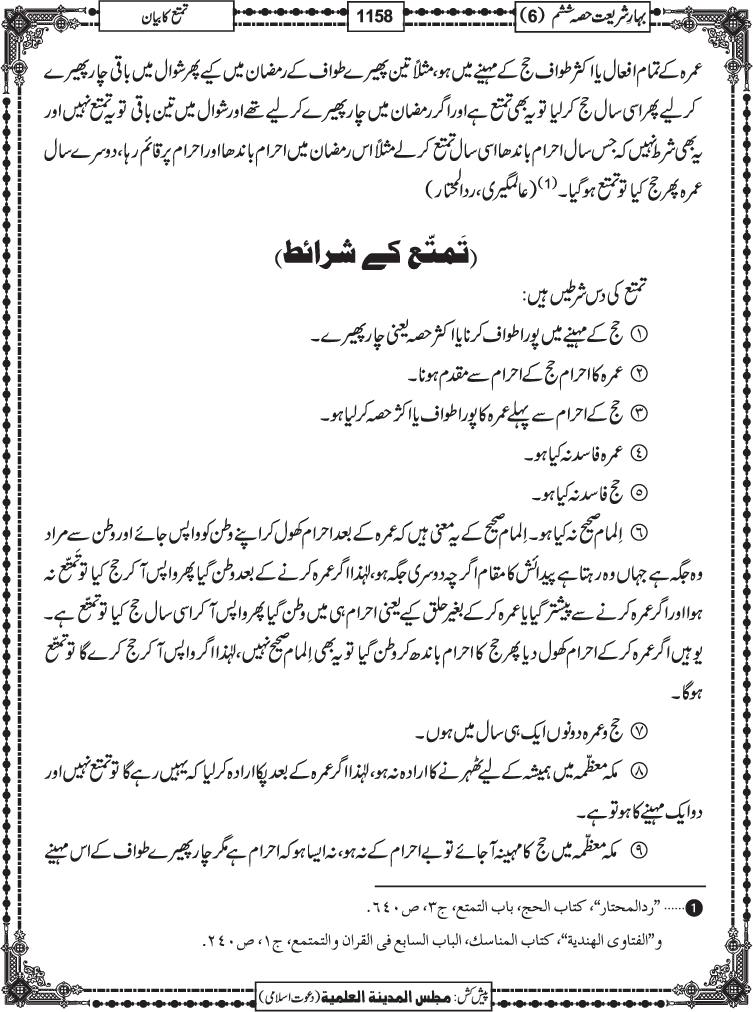 بہار شریعت حصہ ششم (6)
1158
تمتع کا بیان
عمرہ کے تمام افعال یا اکثر طواف حج کے مہینے میں ہو، مثلاً تین پھیرے طواف کے رمضان میں کیے پھر شوال میں باقی چار پھیرے
کر لیے پھر اسی سال حج کر لیا تو یہ بھی تمتع ہے اور اگر رمضان میں چار پھیرے کر لیے تھے اور شوال میں تین باقی تو یہ تمتع نہیں اور
یہ بھی شرط نہیں کہ جس سال احرام باندھا اسی سال تمتع کرلے مثلاً اس رمضان میں احرام باندھا اور احرام پر قائم رہا، دوسرے سال
عمرہ پھر حج کیا تو تمتع ہوگیا۔ (1) (عالمگیری، ردالمحتار)
(تَمتّع کے شرائط)
تمتع کی دس شرطیں ہیں:
① حج کے مہینے میں پورا طواف کرنا یا اکثر حصہ یعنی چار پھیرے۔
② عمرہ کا احرام حج کے احرام سے مقدم ہونا۔
③ حج کے احرام سے پہلے عمرہ کا پورا طواف یا اکثر حصہ کر لیا ہو۔
④ عمرہ فاسد نہ کیا ہو۔
⑤ حج فاسد نہ کیا ہو۔
⑥ اِلمام صحیح نہ کیا ہو۔ اِلمام صحیح کے یہ معنی ہیں کہ عمرہ کے بعد احرام کھول کر اپنے وطن کو واپس جائے اور وطن سے مراد
وہ جگہ ہے جہاں وہ رہتا ہے پیدائش کا مقام اگرچہ دوسری جگہ ہو، لہٰذا اگر عمرہ کرنے کے بعد وطن گیا پھر واپس آکر حج کیا تو تَمتّع نہ
ہوا اور اگر عمرہ کرنے سے پیشتر گیا یا عمرہ کر کے بغیر حلق کیے یعنی احرام ہی میں وطن گیا پھر واپس آکر اسی سال حج کیا تو تمتّع ہے۔
یوہیں اگر عمرہ کر کے احرام کھول دیا پھر حج کا احرام باندھ کر وطن گیا تو یہ بھی اِلمام صحیح نہیں، لہٰذا اگر واپس آکر حج کرے گا تو تمتّع
ہوگا۔
⑦ حج و عمرہ دونوں ایک ہی سال میں ہوں۔
⑧ مکہ معظّمہ میں ہمیشہ کے لیے ٹھہرنے کا ارادہ نہ ہو، لہٰذا اگر عمرہ کے بعد پکا ارادہ کر لیا کہ یہیں رہے گا تو تمتع نہیں اور
دو ایک مہینے کا ہو تو ہے۔
⑨ مکہ معظّمہ میں حج کا مہینہ آجائے تو بے احرام کے نہ ہو، نہ ایسا ہو کہ احرام ہے مگر چار پھیرے طواف کے اس مہینے
1 ...... "ردالمحتار"، كتاب الحج، باب التمتع، ج٣، ص٦٤٠.
و"الفتاوى الهندية"، كتاب المناسك، الباب السابع فى القران والتمتمع، ج١، ص٢٤٠.
پیش کش: مجلس المدینة العلمیة (دعوت اسلامی)